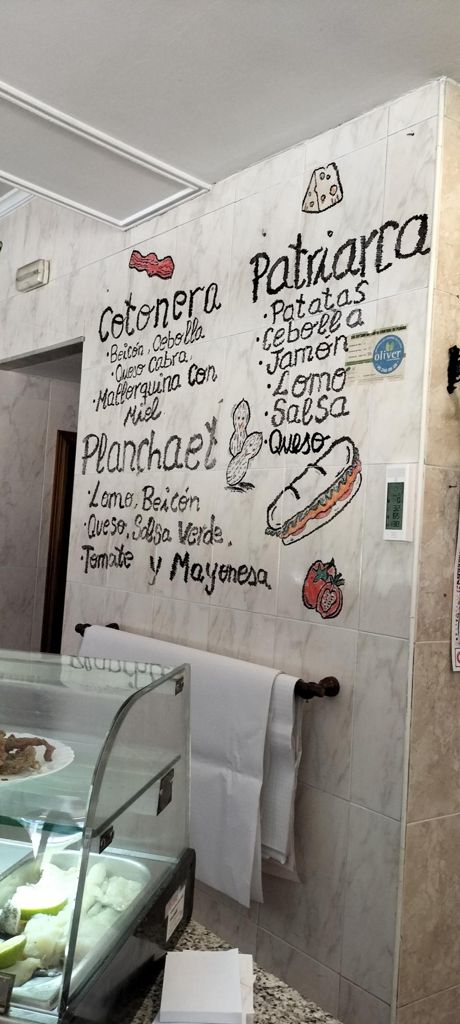 Cotonera
·Beicón, Cebolla
·Queso Cabra,
·Mallorquina con
Miel
Planchaet
·Lomo, Beicón
·Queso, Salsa Verde,
·Tomate y Mayonesa
Patriarca
·Patatas
·Cebolla
·Jamón
·Lomo
·Salsa
·Queso
oliver